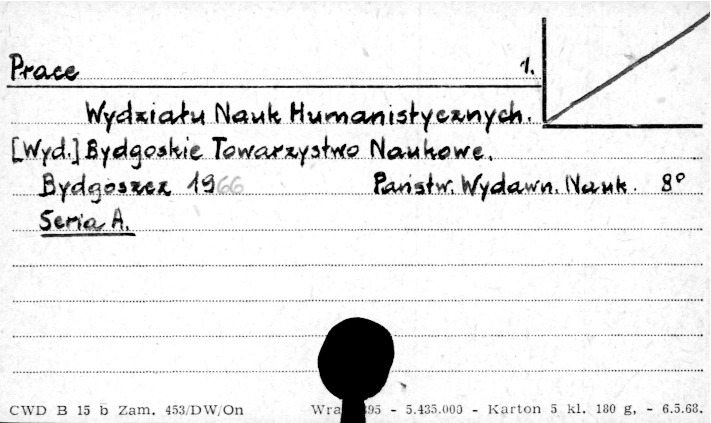 Prace 1.
Wydziału Nauk Humanistycznych.
[Wyd.] Bydgoskie Towarzystwo Naukowe.
Bydgoszcz 1966 Państw. Wydawn. Nauk. 8°
Seria A.
CWD B 15 b Zam. 453/DW/On Wra 395 - 5.435.000 - Karton 5 kl. 180 g, - 6.5.68.